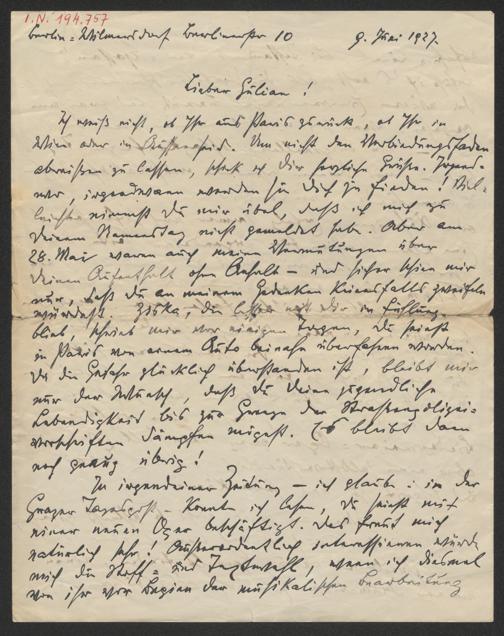 I.N. 194.757
Berlin-Wilmersdorf Berlinerstr 10 9. Juni 1927.
Lieber Gülian!
Ich weiß nicht, ob Ihr aus Paris zurück, ob Ihr in
Wien oder in Aussee seid. Um nicht den Verbindungsfaden
abreißen zu lassen, schick ich Dir herzliche Grüße. Irgend-
wo, irgendwann werden sie Dich ja finden! Viel-
leicht nimmst Du mir übel, daß ich mich zu
Deinem Namenstag nicht gemeldet hab. Aber am
28. Mai waren auch meine Vermutungen über
Deinen Aufenthalt ohne Anhalt – und sicher schien mir
nur, daß Du an meinem Gedenken keinesfalls zweifeln
würdest. die mit Dir in Fühlung
blieb, schrieb mir vor einigen Tagen, Du seist
in Paris von einem Auto beinahe überfahren worden.
Da die Gefahr glücklich überstanden ist, bleibt mir
nur der Wunsch, daß Du Deine jugendliche
Lebendigkeit bis zur Grenze der Straßenpolizei-
vorschriften dämpfen mögest. Es bleibt dann
noch genug übrig!
In irgendeiner Zeitung – ich glaube: in der
Grazer Tagespost – konnt ich lesen, Du seist mit
einer neuen Oper beschäftigt. Das freut mich
natürlich sehr. Außerordentlich interessieren würde
mich die Stoff- und Textwahl, wenn ich diesmal
von ihr vor Beginn der musikalischen Bearbeitung